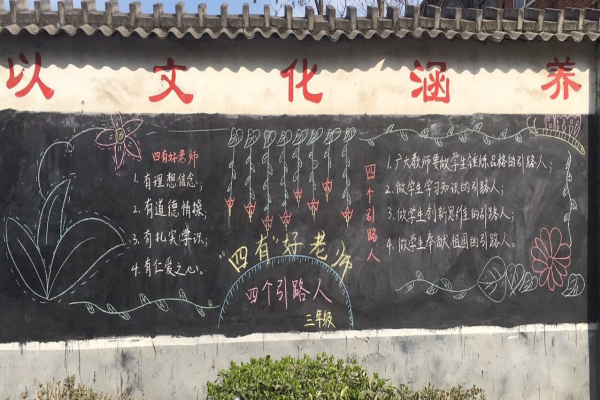 以文化涵养
四有好老师
1.有理想信念；
2.有道德情操；
3.有扎实学识；
4.有仁爱之心。
"四有"好老师
四个引路人
三年级
四个引路人
1.广大教师要做学生锤炼品格的引路人；
2.做学生学习知识的引路人；
3.做学生创新思维的引路人；
4.做学生奉献祖国的引路人。